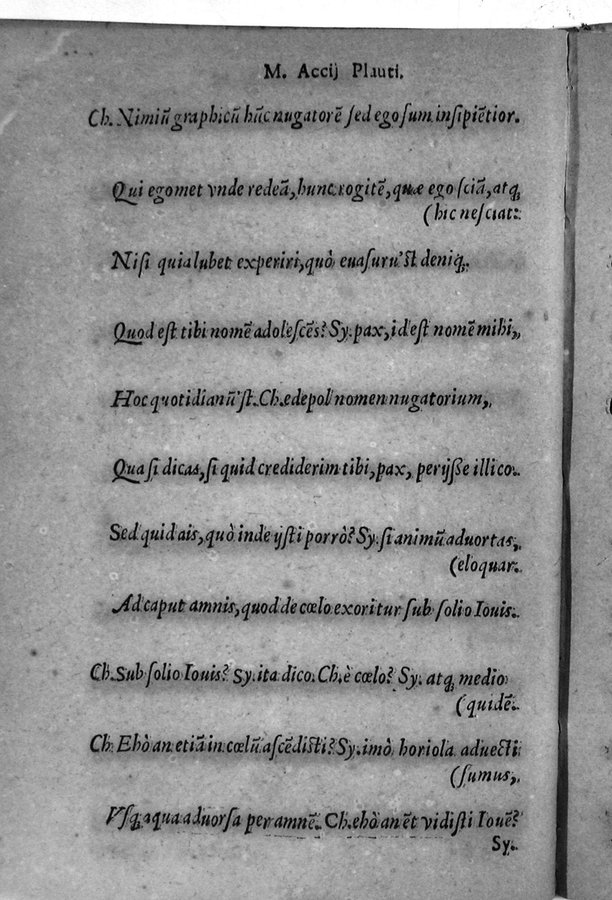 M. Accij Plauti.
Ch. Nimiũ graphicũ hũc nugatorẽ sed ego sum insipiẽtior.
Qui egomet vnde redeã, hunc rogitẽ, quæ ego sciã, atq;
(hic nesciat:
Nisi quia lubet experiri, quò euasuru'st deniq;.
Quod est tibi nomẽ adolescẽs? Sy. pax, id est nomẽ mihi,
Hoc quotidianũ'st. Ch. edepol nomen nugatorium,
Quasi dicas, si quid crediderim tibi, pax, perijsse illico.
Sed quid ais, quò inde ijsti porrò? Sy. si animũ aduortas,
(eloquar.
Ad caput amnis, quod de cœlo exoritur sub solio Iouis.
Ch. Sub solio Iouis? Sy. ita dico. Ch. è cœlo? Sy. atq; medio
(quidẽ.
Ch. Ehò an etiã in cœlũ ascẽdisti? Sy. imò horiola aduecti
(sumus,
Vsq; aqua aduorsa per amnẽ. Ch. ehò an ẽt vidisti Iouẽ?
Sy.